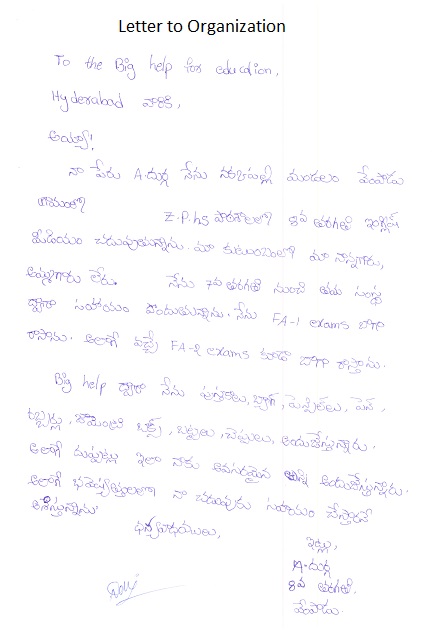 Letter to Organization
To the Big help for education,
Hyderabad వారికి,
అయ్యా!
నా పేరు A.దుర్గ నేను మండలం వేంపాడు
గ్రామంలో
Z.P.hs పాఠశాలలో 8వ తరగతి ఇంగ్లీష్
మీడియం చదువుతున్నాను. మా కుటుంబంలో మా నాన్నగారు,
అమ్మగారు లేరు. నేను 7వ తరగతి నుంచి తమ సంస్థ
ద్వారా సహాయం పొందుతున్నాను. నేను FA-1 exams బాగా
రాసాను. అలాగే వచ్చే FA-2 exams కూడా బాగా రాస్తాను.
Big help ద్వారా నేను పుస్తకాలు, బ్యాగ్, పెన్సిల్‌లు, పెన్,
రబ్బర్లు, జామెంట్రి బాక్స్, బట్టలు, చెప్పులు, అందుచేస్తున్నారు.
అలాగే దుప్పట్లు ఇలా నాకు అవసరమైన అన్ని అందుచేస్తున్నారు.
అలాగే భవిష్యత్తులలో నా చదువుకు సహాయం చేస్తారని
ఆశిస్తున్నాను.
ధన్యవాదములు,
ఇట్లు,
A.దుర్గ
8వ తరగతి.
వేంపాడు.